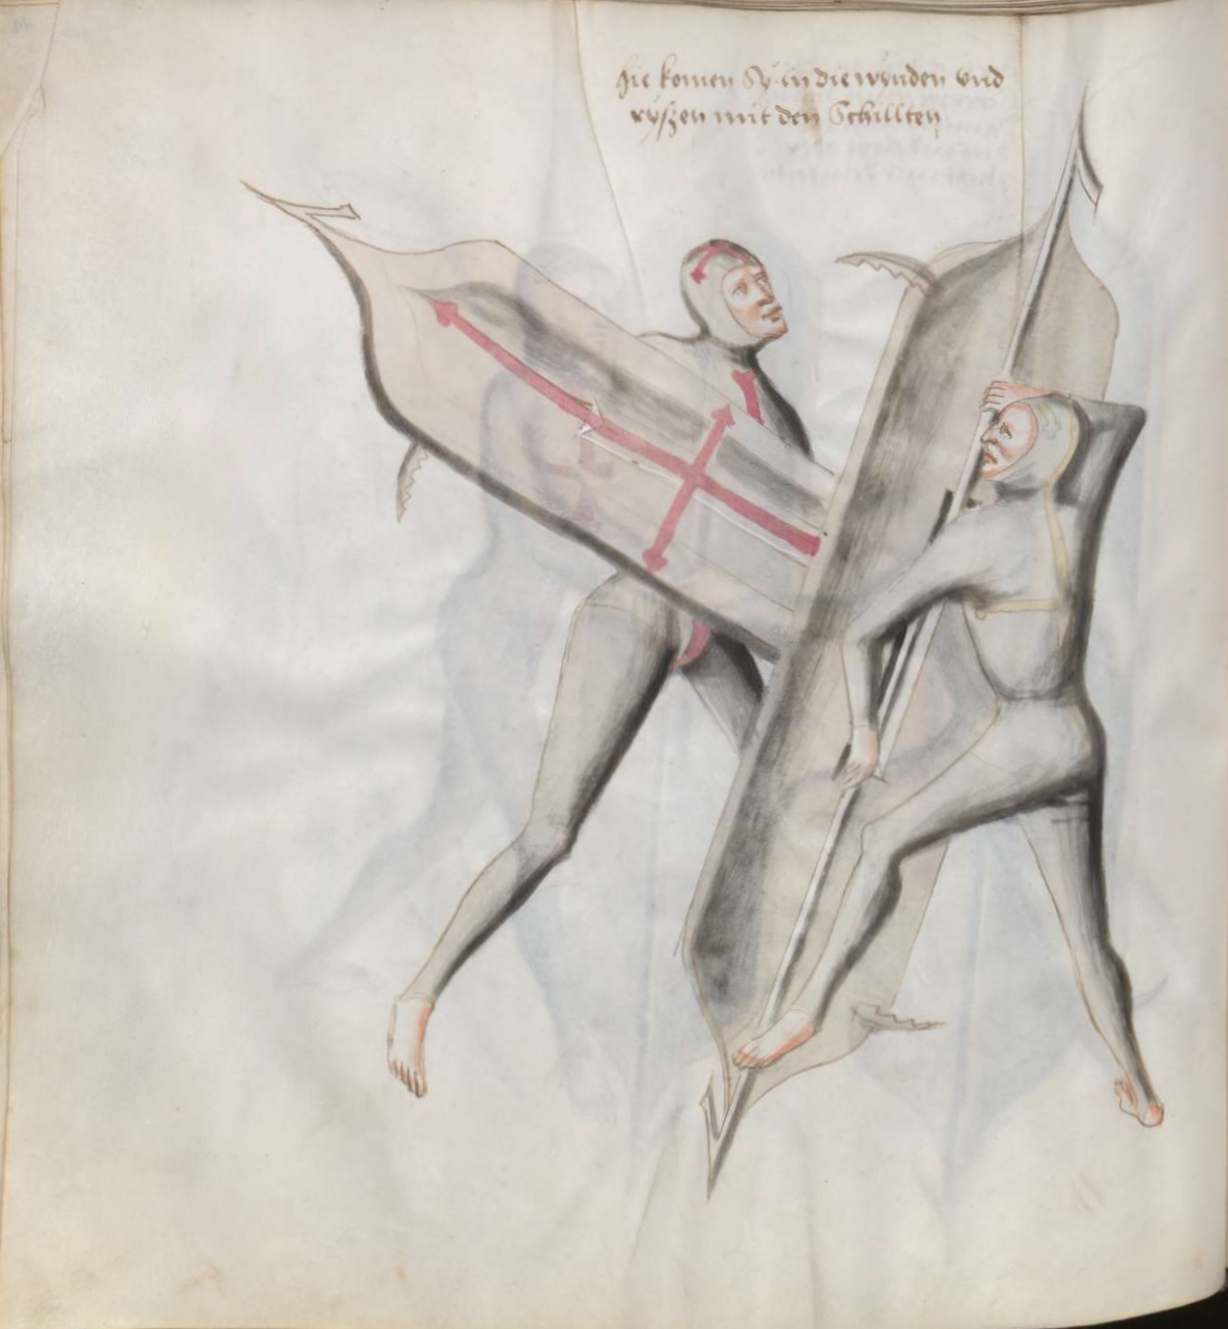 Hie komen Sy in die wynden vnd
ryszen mit den Schillten